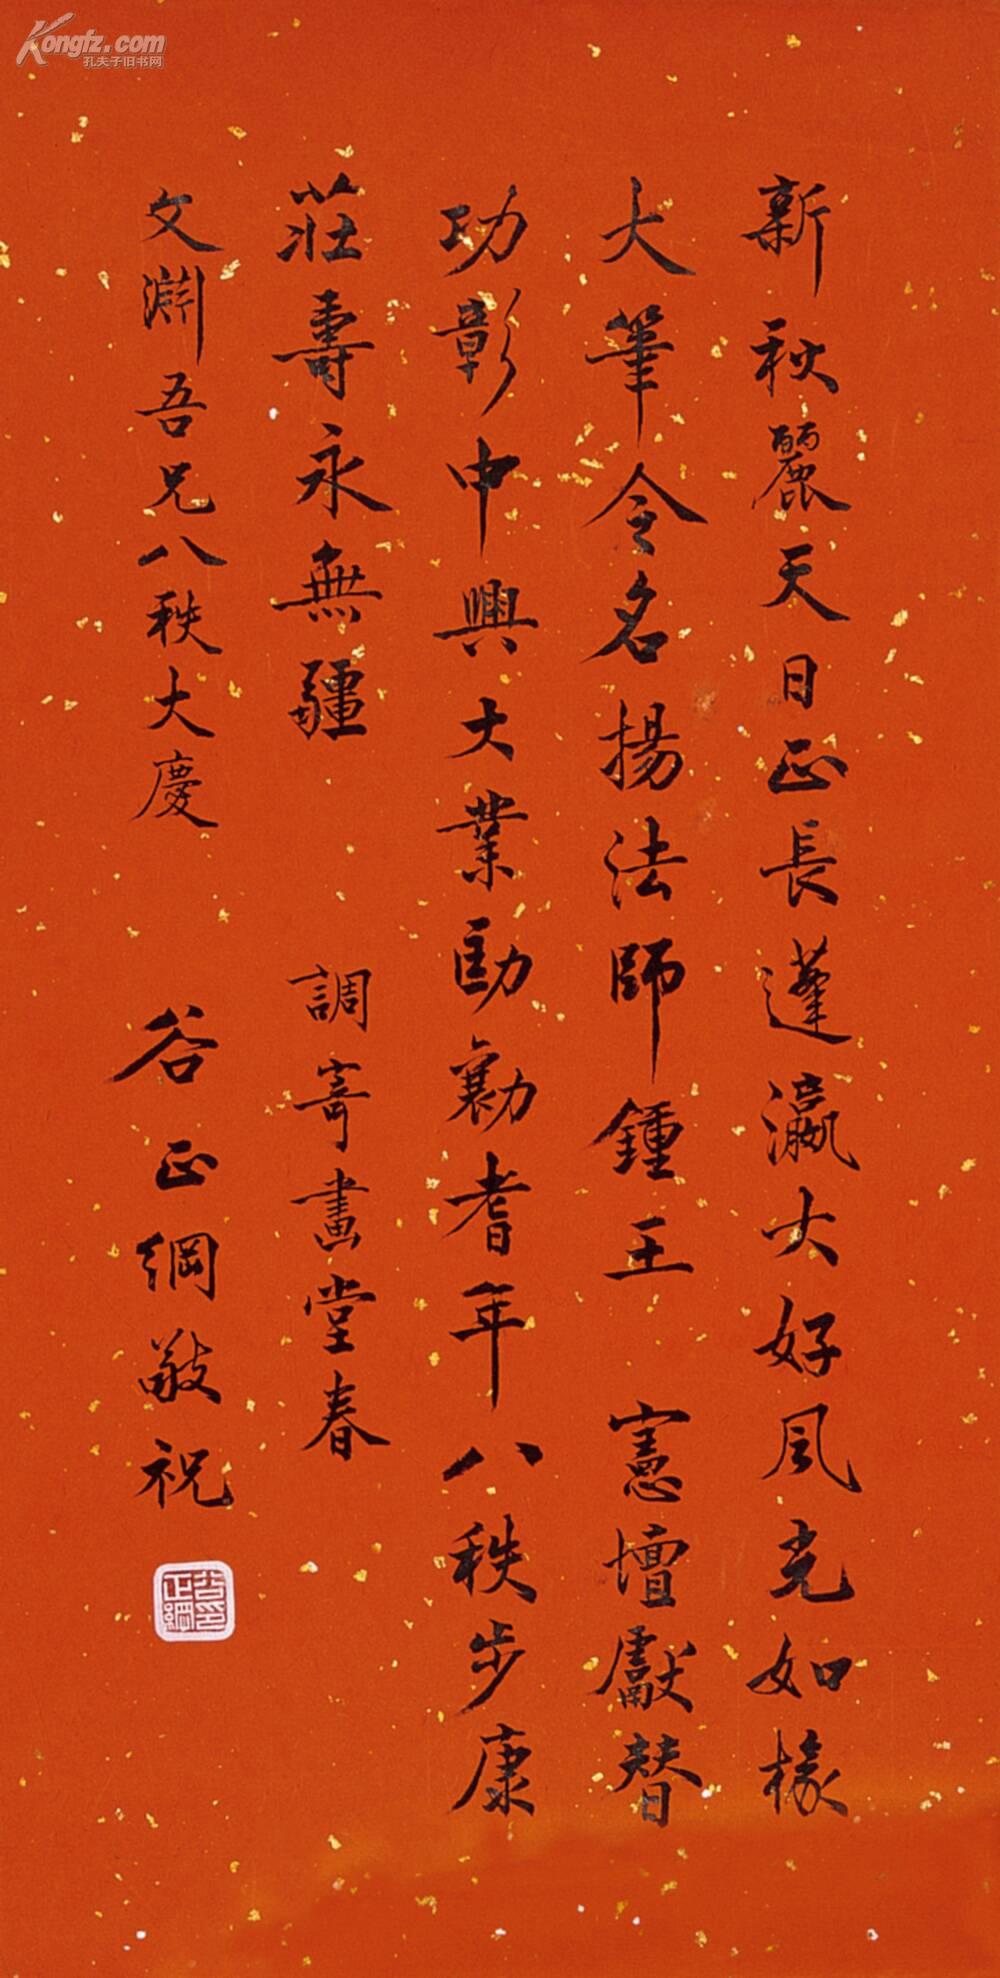 新秋麗天日正長蓬瀛大好風光如椽
大筆令名揚法師鍾王 憲壇獻替
功彰中興大業勛勷耆年八秩步康
莊壽永無疆 調寄畫堂春
文淵吾兄八秩大慶 谷正綱敬祝
谷正綱印
Kongfz.com
孔夫子旧书网